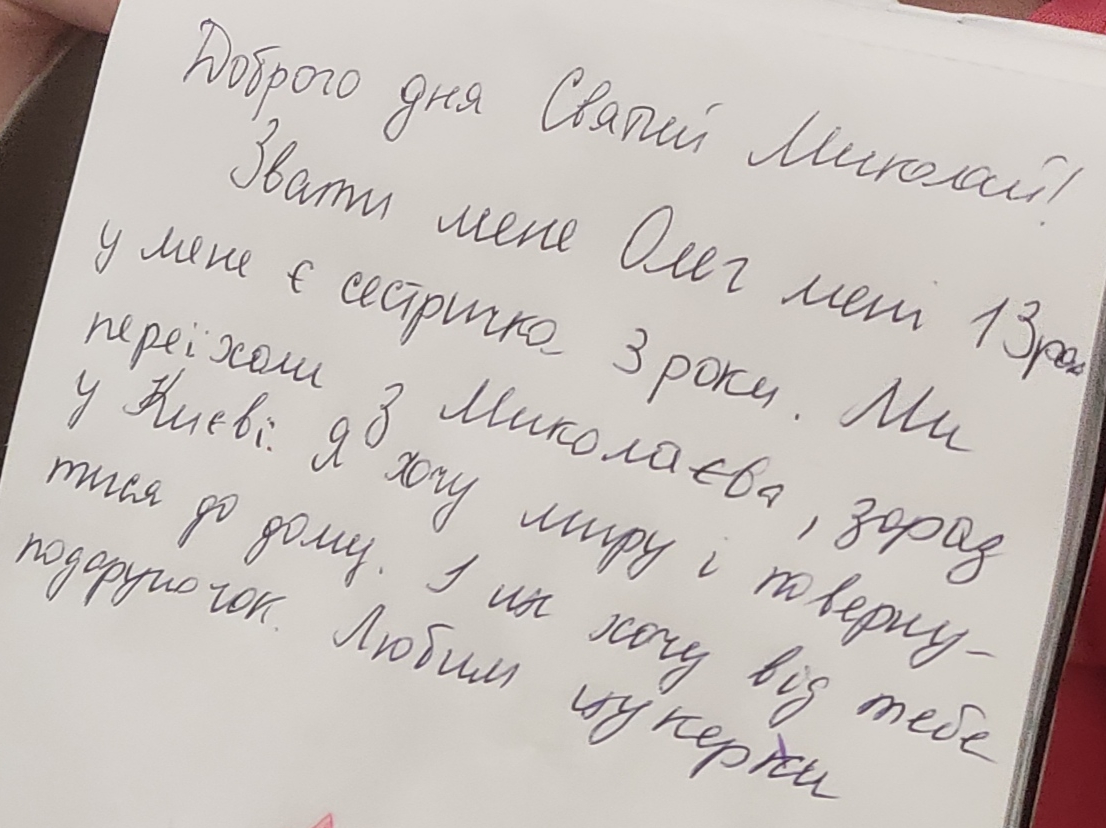 Доброго дня Святий Миколай!
Звати мене Олег мені 13 рок
у мене є сестричка 3 роки. Ми
переїхали З Миколаєва, зараз
у Києві. Я хочу миру і поверну-
тися до дому. І ми хочу від тебе
подаруночок. Любим цукерки